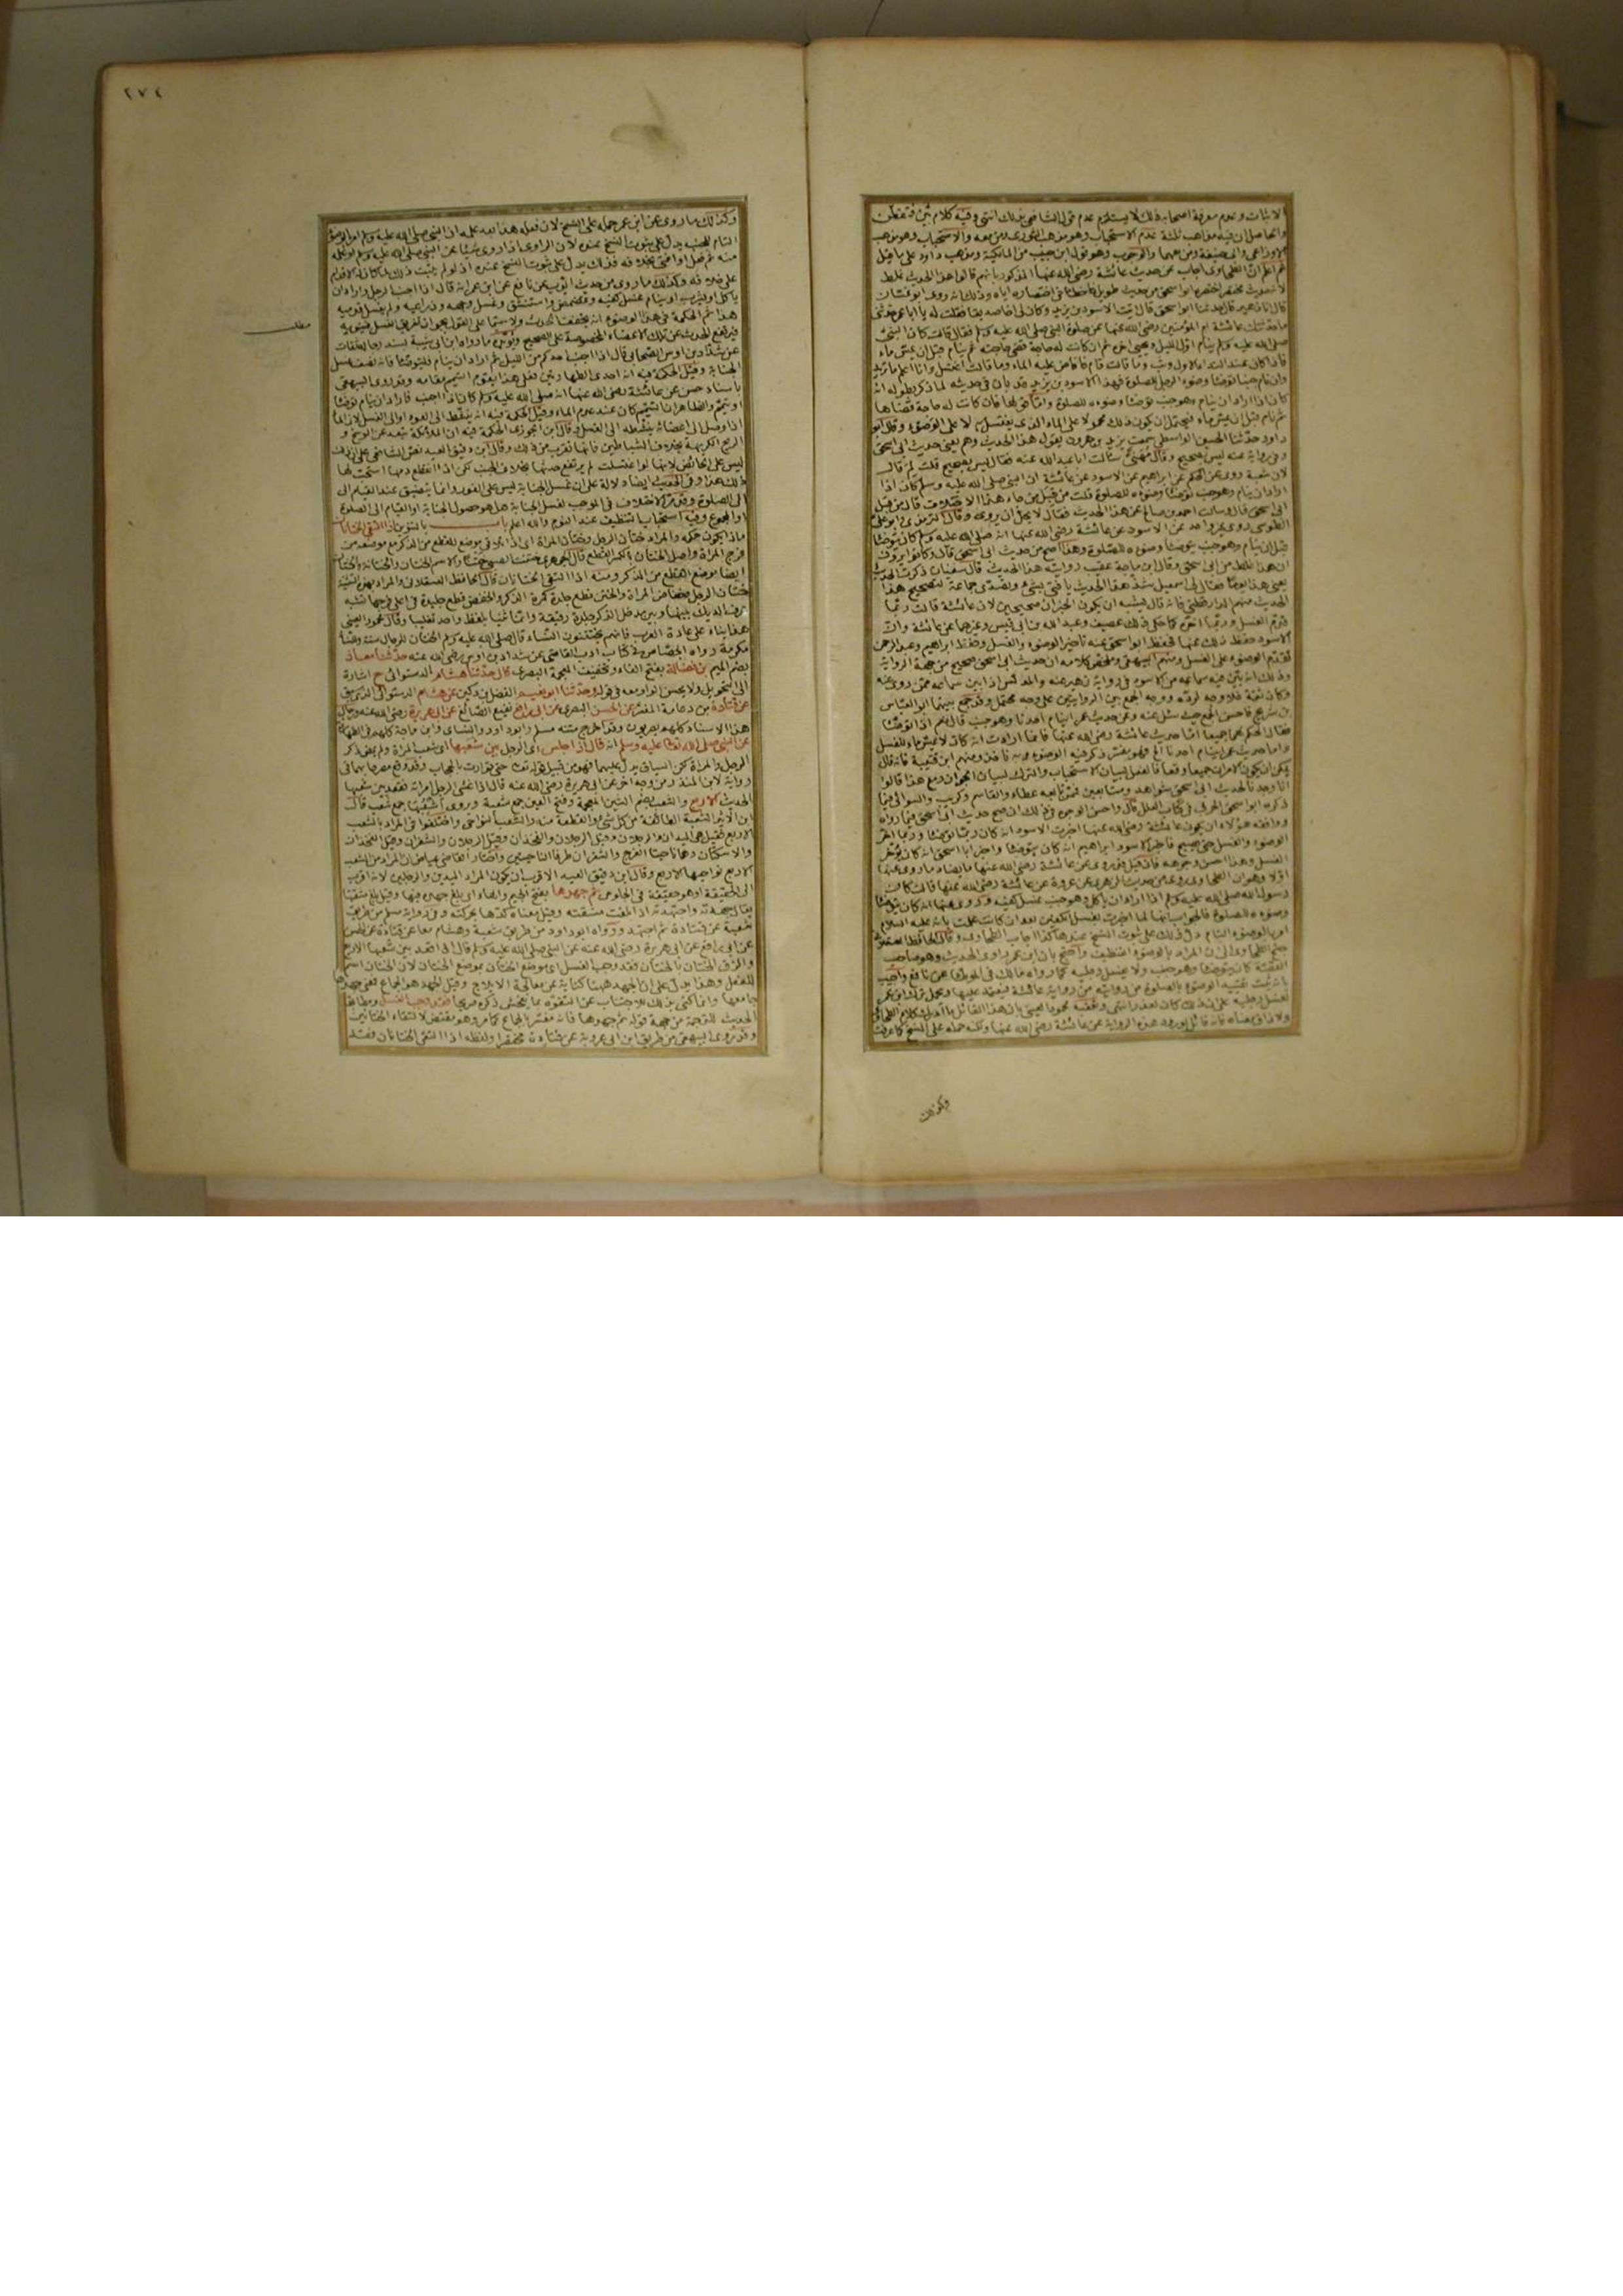 الاثبات وعدم معرفة اصحابه ذلك لا يستلزم عدم قول الشافعى بذلك انتهى وفيه كلام
والحاصل ان فيه مذاهب ثلثة عدم الاستحباب وهو مذهب الثورى ومن معه والاستحباب وهو مذهب
الاوزاعى وابى حنيفة ومن معهما والوجوب وهو قول ابن حبيب من المالكية ومذهب داود على ما قيل
ثم اعلم ان الطحاوى اجاب عن حديث عائشة رضى الله عنها المذكور بانهم قالوا هذا الحديث غلط
لانه حديث مختصر اختصره ابو اسحق من حديث طويل فاخطأ فى اختصاره اياه وذلك انه روى ابو غسان
قال انا زهير قال حدثنا ابو اسحق قال اتيت الاسود بن يزيد وكان لى اخا صديقا فقلت له يا ابا عمر حدثنى
ما حدثتك عائشة ام المؤمنين رضى الله عنها عن صلوة النبى صلى الله عليه وسلم فقال قالت كان النبى
صلى الله عليه وسلم ينام اول الليل ويحيى اخره ثم ان كانت له حاجة قضى حاجته ثم ينام قبل ان يمس ماء
فاذا كان عند النداء الاول وثب وما قالت قام فافاض عليه الماء وما قالت اغتسل وانا اعلم ما تريد
وان نام جنبا توضأ وضوء الرجل للصلوة فهذا الاسود بن يزيد قد بان فى حديثه لما ذكر بطوله انه
كان اذا اراد ان ينام وهو جنب توضأ وضوءه للصلوة
ثم نام قبل ان يمس ماء فيحتمل ان يكون ذلك محمولا على الماء الذى يغتسل به لا على الوضوء وقال ابو
داود حدثنا الحسين الواسطى سمعت يزيد بن هرون يقول هذا الحديث وهم يعنى حديث ابى اسحق
وفى رواية عنه ليس بصحيح وقال مهنئ سألت ابا عبد الله عنه فقال ليس بصحيح قلت لم قال
لان شعبة روى عن الحكم عن ابراهيم عن الاسود عن عائشة ان النبى صلى الله عليه وسلم كان اذا
اراد ان ينام وهو جنب توضأ وضوءه للصلوة قلت من قبل من جاء هذا الاختلاف قال من قبل
ابى اسحق قال وسالت احمد بن صالح عن هذا الحديث فقال لا يحل ان يروى وقال الترمذى وابو على
الطوسى روى غير واحد عن الاسود عن عائشة رضى الله عنها انه صلى الله عليه وسلم كان يتوضأ
قبل ان ينام وهو جنب يتوضأ وضوءه للصلوة وهذا اصح من حديث ابى اسحق قال وكانوا يرون
ان هذا غلط من ابى اسحق وقال ابن ماجة عقيب روايته هذا الحديث قال سفيان ذكرت الحديث
يعنى هذا يوما فقال لى اسمعيل شد هذا الحديث يا فتى بشئ وتصدى جماعة لتصحيح هذا
الحديث منهم الدارقطنى فانه قال يشبه ان يكون الخبران صحيحين لان عائشة قالت ربما
قدم الغسل وربما اخره كما حكى ذلك غضيف وعبد الله بن ابى قيس وغيرهما عن عائشة وان
الاسود حفظ ذلك عنها فحفظ ابو اسحق عنه تأخير الوضوء والغسل وحفظ ابراهيم وعبد الرحمن
تقديم الوضوء على الغسل ومنهم البيهقى وملخص كلامه ان حديث ابى اسحق صحيح من جهة الرواية
وذلك انه بين فيه سماعه من الاسود فى رواية زهير عنه والمدلس اذا بين سماعه ممن روى عنه
وكان ثقة فلا وجه لرده ووجه الجمع بين الروايتين على وجه يحتمل وقد جمع بينهما ابو العباس
بن سريج فاحسن الجمع حيث سئل عنه وعن حديث عمر اينام احدنا وهو جنب قال نعم اذا توضأ
فقال الحكم بهما جميعا اما حديث عائشة رضى الله عنها فانما ارادت انه كان لا يمس ماء للغسل
واما حديث عمر اينام احدنا الخ فهو مفسر ذكر فيه الوضوء وبه ناخذ ومنهم ابن قتيبة فانه قال
يمكن ان يكون الامران جميعا وقعا فالفعل لبيان الاستحباب والترك لبيان الجواز ومع هذا قالوا
انا وجدنا لحديث ابى اسحق شواهد ومتابعين فممن تابعه عطاء والقاسم وكريب والسوائى فيما
ذكره ابو اسحق الحربى فى كتاب العلل قال واحسن الوجوه فى ذلك ان صح حديث ابى اسحق فيما رواه
ووافقه هؤلاء ان يكون عائشة رضى الله عنها اخبرت الاسود انه كان ربما توضأ وربما اخر
الوضوء والغسل حتى يصبح فاخبر الاسود ابراهيم انه كان يتوضأ واخبر ابا اسحق انه كان يؤخر
الغسل وهذا احسن وجوهه فان قيل قد روى عن عائشة رضى الله عنها ما يضاد ما روى عنها
اولا وهو ان الطحاوى روى من حديث الزهرى عن عروة عن عائشة رضى الله عنها قالت كان
رسول الله صلى الله عليه وسلم اذا اراد ان ياكل وهو جنب غسل كفيه وقد روى عنها انه كان يتوضأ
وضوءه للصلوة فالجواب انها لما اخبرت بغسل الكفين بعد ان كانت علمت بانه عليه السلام
امر بالوضوء التام دل ذلك على ثبوت النسخ عندها كذا اجاب الطحاوى وقال الحافظ العسقلانى
جنح الطحاوى الى ان المراد بالوضوء التنظيف واحتج بان ابن عمر راوى الحديث وهو صاحب
القصة كان يتوضأ وهو جنب ولا يغسل رجليه كما رواه مالك فى الموطأ عن نافع واجيب
بانه ثبت تقييد الوضوء بالصلوة من روايته من رواية عائشة فيعتمد عليها ويحمل ترك ابن عمر
لغسل رجليه على ان ذلك كان لعذر انتهى وتعقبه محمود العينى بان هذا القائل ما ادرك كلام الطحاوى
ولا ذاق معناه فانه قائل بورود هذه الرواية عن عائشة رضى الله عنها ولكنه حمله على النسخ كما عرفت
وكذلك
٢٧٤
وكذلك ما روى عن ابن عمر حمله على النسخ لان فعله هذا بعد علمه ان النبى صلى الله عليه وسلم امر بالوضوء
التام للجنب يدل على ثبوت النسخ عنده لان الراوى اذا روى شيئا عن النبى صلى الله عليه وسلم او علمه
منه ثم فعل او افتى بخلافه فذلك يدل على ثبوت النسخ عنده اذ لو لم يثبت ذلك لما كان له الاقدام
على خلافه وكذلك ما روى من حديث ايوب عن نافع عن ابن عمر انه قال اذا اجنب الرجل واراد ان
ياكل او يشرب او ينام غسل كفيه وتمضمض واستنشق وغسل وجهه وذراعيه ولم يغسل قدميه
هذا ثم الحكمة فى هذا الوضوء انه يخفف الحدث ولا سيما على القول بجواز تفريق الغسل فينويه
مطلب
فيرتفع الحدث عن تلك الاعضاء المخصوصة على الصحيح ويؤيده ما رواه ابن ابى شيبة بسند رجاله ثقات
عن شداد بن اوس الصحابى قال اذا اجنب احدكم من الليل ثم اراد ان ينام فليتوضأ فانه نصف غسل
الجنابة وقيل الحكمة فيه انه احدى الطهارتين فعلى هذا يقوم التيمم مقامه وقد روى البيهقى
باسناد حسن عن عائشة رضى الله عنها انه صلى الله عليه وسلم كان اذا اجنب فاراد ان ينام توضأ
او تيمم والظاهر ان التيمم كان عند عدم الماء وقيل الحكمة فيه انه ينشط الى العود او الى الغسل
اذا وصل الى اعضائه ينشطه الى الغسل وقال ابن الجوزى الحكمة فيه ان الملائكة تبعد عن الوسخ و
الريح الكريهة بخلاف الشياطين فانها تقرب من ذلك وقال ابن دقيق العيد نص الشافعى على ان ذلك
ليس على الحائض لانها لو اغتسلت لم يرتفع حدثها بخلاف الجنب لكن اذا انقطع دمها استحب لها
ذلك هذا وفى الحديث ايضا دلالة على ان غسل الجنابة ليس على الفور وانما يتضيق عند القيام الى
الى الصلوة وقد مر الاختلاف فى الموجب لغسل الجنابة هل هو حصول الجنابة او القيام الى الصلوة
او المجموع وفيه استحباب التنظيف عند النوم والله اعلم باب بالتنوين اذا التقى الختانان
ماذا يكون حكمه والمراد ختان الرجل وختان المرأة اى اذا
فرج المرأة واصل الختان بالكسر القطع قال الجوهرى ختنت الصبى ختنا والاسم الختان والختانة والختان
ايضا موضع القطع من الذكر ومنه اذا التقى الختانان قال الحافظ العسقلانى والمراد بهذه التثنية
ختان الرجل وخفاض المرأة والختن قطع جلدة كمرة الذكر والخفض قطع جليدة فى اعلى فرجها تشبه
عرف الديك بينها وبين مدخل الذكر جلدة رقيقة وانما ثنيا بلفظ واحد تغليبا وقال محمود العينى
هذا بناء على عادة العرب فانهم يختتنون النساء قال صلى الله عليه وسلم الختان للرجال سنة وللنساء
مكرمة رواه الجصاص فى كتاب ادب القاضى عن شداد بن اوس رضى الله عنه حدثنا معاذ
بضم الميم بن فضالة بفتح الفاء وتخفيف المعجمة البصرى قال حدثنا هشام الدستوائى ح اشارة
الى التحويل ولا يحسن الواو معه فى قوله وحدثنا ابو نعيم الفضل بن دكين عن هشام الدستوائى
عن قتادة بن دعامة المفسر عن الحسن البصرى عن ابى رافع نفيع الصائغ عن ابى هريرة رضى الله عنه ورجال
هذا الاسناد كلهم بصريون وقد اخرج متنه مسلم وابو داود والنسائى وابن ماجة كلهم فى الطهارة
عن النبى صلى الله تعالى عليه وسلم انه قال اذا جلس اى الرجل بين شعبها اى شعب المرأة ولم يمض ذكر
الرجل والمرأة لكن السياق يدل عليهما فهو من قبيل قوله تعالى حتى توارت بالحجاب وقد وقع مصرحا بهما فى
رواية لابن المنذر من وجه آخر عن ابى هريرة رضى الله عنه قال اذا غشى الرجل امرأته فقعد بين شعبها
الحديث الاربع والشعب بضم الشين المعجمة وفتح العين جمع شعبة وروى اشعبها جمع شعب قال
ابن الاثير الشعبة الطائفة من كل شئ والقطعة منه والشعب النواحى واختلفوا فى المراد بالشعب
الاربع فقيل هى اليدان والرجلان وقيل الرجلان والفخذان وقيل الرجلان والشفران وقيل الفخذان
والاسكتان وهما ناحيتا الفرج والشفران طرفا الناحيتين واختار القاضى عياض ان المراد من الشعب
الاربع نواحيها الاربع وقال ابن دقيق العيد الاقرب ان يكون المراد اليدين والرجلين لانه اقرب
الى الحقيقة او هو حقيقة فى الجلوس ثم جهدها بفتح الجيم والهاء اى بلغ جهده فيها وقيل بلغ مشقتها
يقال جهدته واجهدته اذا بلغت مشقته وقيل معناه كدها بحركته وفى رواية مسلم من طريق
شعبة عن قتادة ثم اجتهد ورواه ابو داود من طريق شعبة وهشام معا عن قتادة عن الحسن
عن ابى رافع عن ابى هريرة رضى الله عنه عن النبى صلى الله عليه وسلم قال اذا قعد بين شعبها الاربع
والزق الختان بالختان فقد وجب الغسل اى موضع الختان بموضع الختان لان الختان اسم
للفعل وهذا يدل على ان الجهد ههنا كناية عن معالجة الايلاج وقيل الجهد هو الجماع فمعنى جهدها
جامعها وانما كنى بذلك للاجتناب عن التفوه بما يفحش ذكره صريحا فقد وجب الغسل ومطابقة
الحديث للترجمة من جهة قوله ثم جهدها فانه مفسر بالجماع كما مر وهو مقتض لالتقاء الختانين
وقد روى البيهقى من طريق ابن ابى عروبة عن قتادة مختصرا ولفظه اذا التقى الختانان فقد